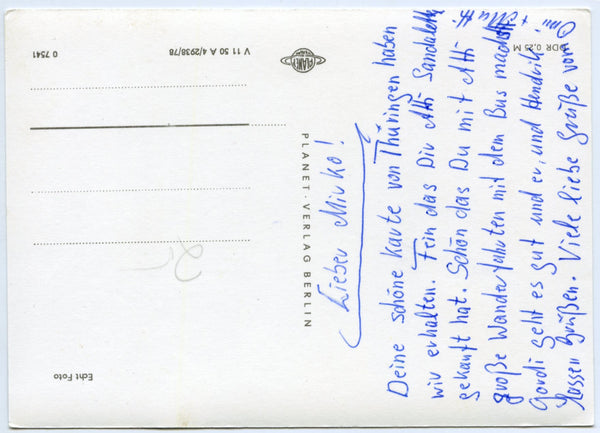 Lieber Mirko!
Deine schöne Karte von Thüringen haben
wir erhalten. Fein das Dir Atti Sandaletten
gekauft hat. Schön das Du mit Atti
große Wanderfahrten mit dem Bus machst.
Gordi geht es gut und er, und Hendrik
lassen Grüßen. Viele liebe Grüße von
Omi +
PLANET-VERLAG BERLIN
PLANET
V 11 50 A 4/2938/78
0 7541
DDR 0,25 M
Echt Foto